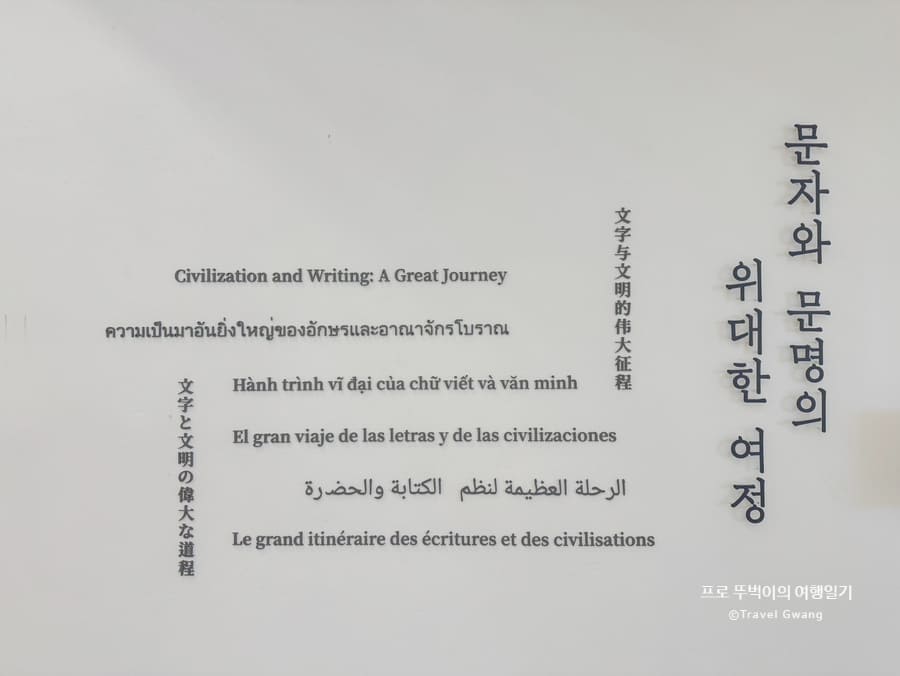 문자와 문명의
위대한 여정
文字与文明的伟大征程
Civilization and Writing: A Great Journey
ความเป็นมาอันยิ่งใหญ่ของอักษรและอาณาจักรโบราณ
Hành trình vĩ đại của chữ viết và văn minh
El gran viaje de las letras y de las civilizaciones
الرحلة العظيمة لنظم الكتابة والحضرة
Le grand itinéraire des écritures et des civilisations
文字と文明の偉大な道程
프로 뚜벅이의 여행일기
©Travel Gwang